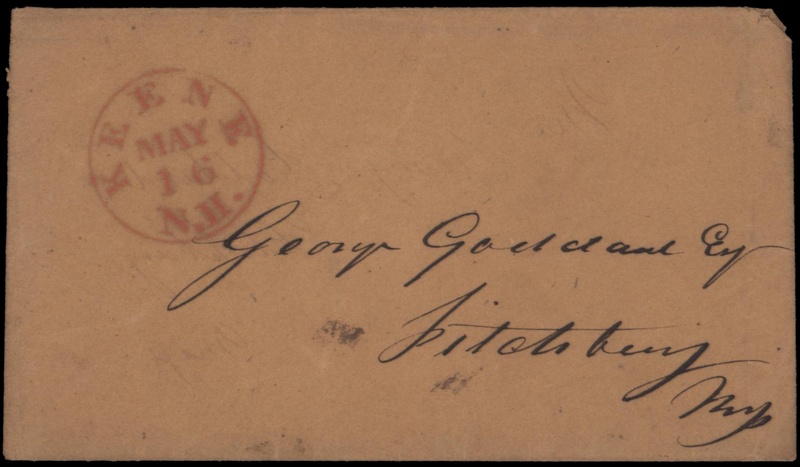 KEENE
MAY
16
N.H.
George Goddard Esq
Fitchburg
Mass